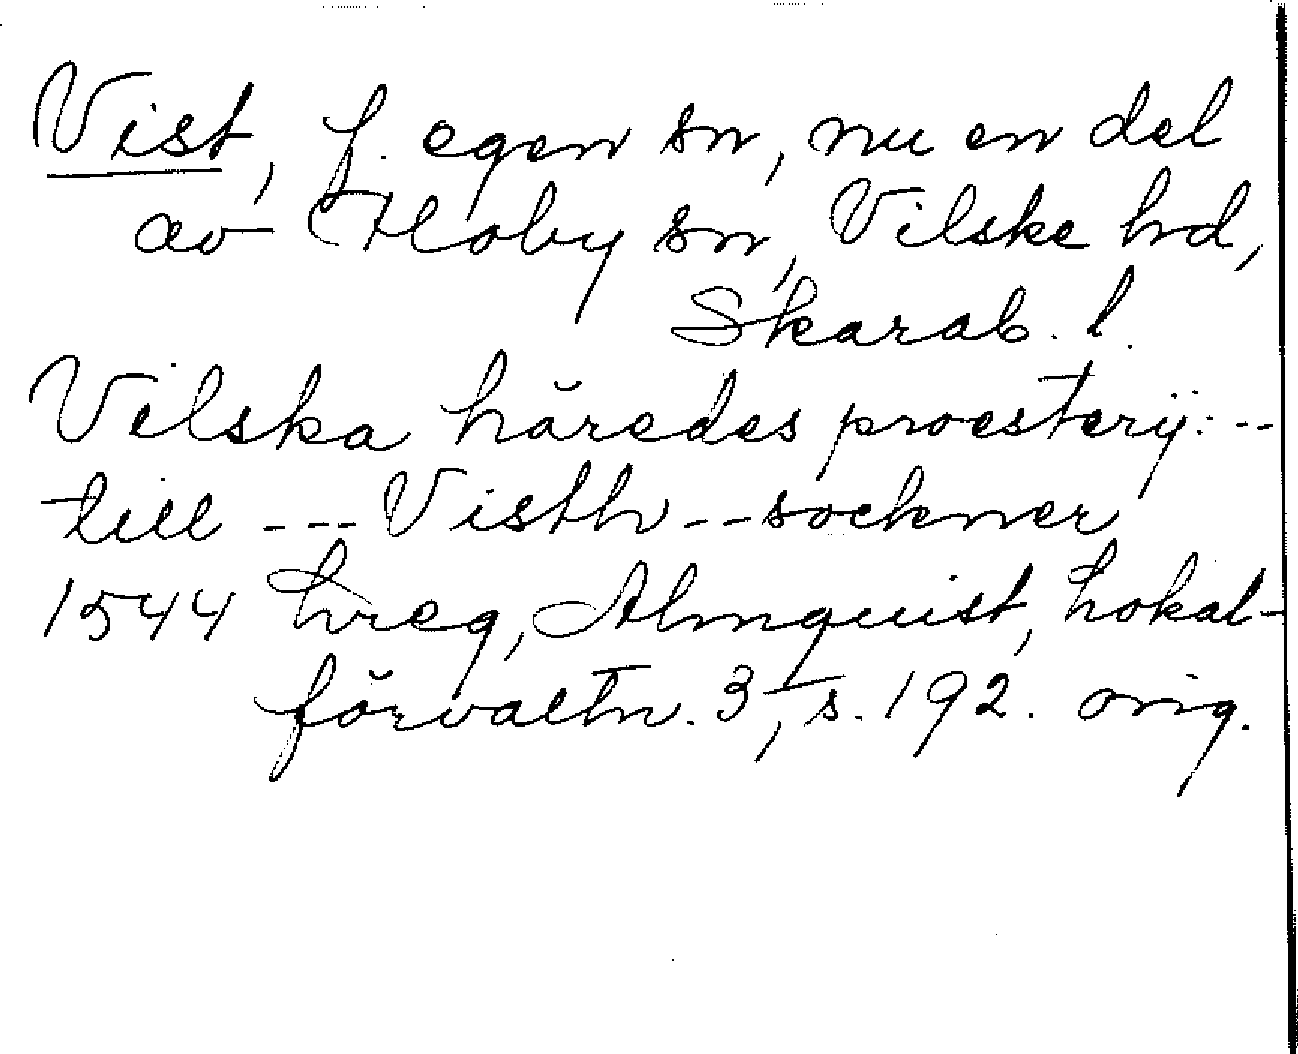 Vist, f. egen sn, nu en del
av Floby sn, Vilske hd,
Skarab. l.
Vilska häredes proesterij: --
till --- Visth -- sockner
1544 Lreg, Almquist, Lokal-
förvaltn. 3, s. 192. orig.